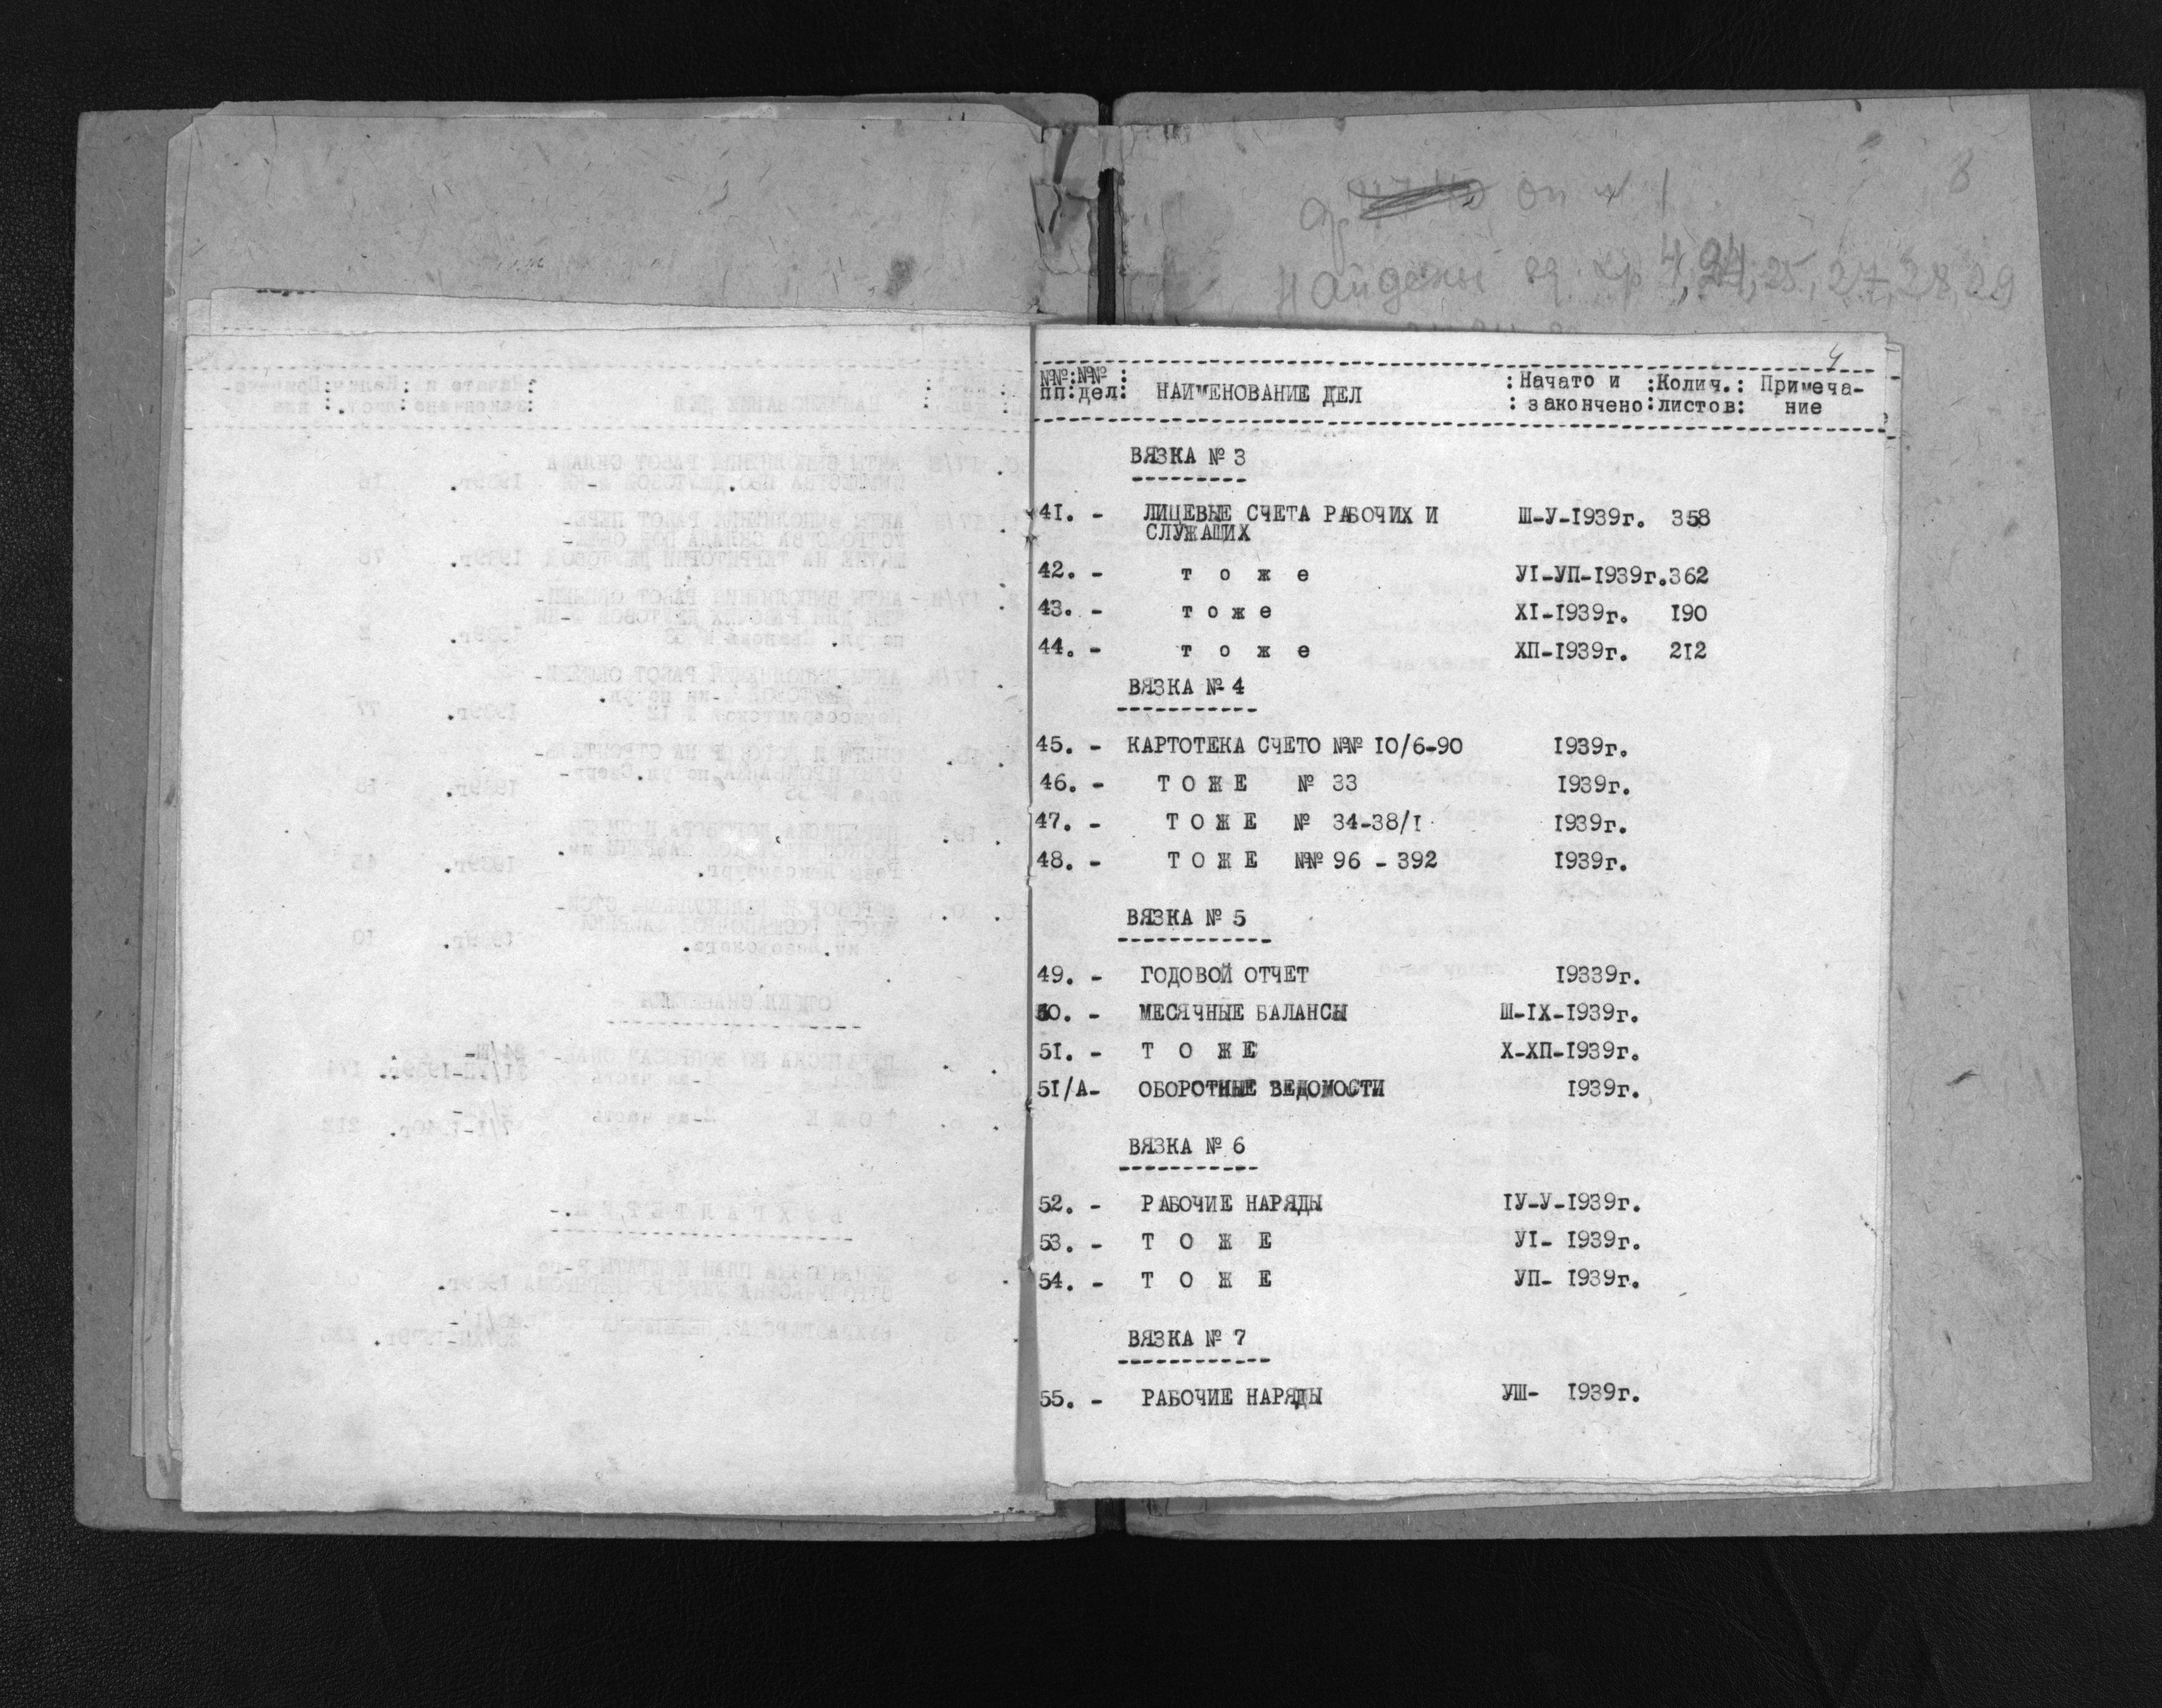 оп № 1
Найдены ед. хр 4, 24, 25, 27, 28, 29
4
№№:№№ : НАИМЕНОВАНИЕ ДЕЛ :Начато и :Колич.: Примеча-
пп:дел: :закончено:листов: ние
ВЯЗКА № 3
41. - ЛИЦЕВЫЕ СЧЕТА РАБОЧИХ И Ш-У-1939г. 358
СЛУЖАЩИХ
42. - т о ж е УІ-УП-1939г.362
43. - т о ж е ХІ-1939г. 190
44. - т о ж е ХП-1939г. 212
ВЯЗКА № 4
45. - КАРТОТЕКА СЧЕТО №№ 10/6-90 1939г.
46. - Т О Ж Е № 33 1939г.
47. - Т О Ж Е № 34-38/I 1939г.
48. - Т О Ж Е №№ 96 - 392 1939г.
ВЯЗКА № 5
49. - ГОДОВОЙ ОТЧЕТ 19339г.
50. - МЕСЯЧНЫЕ БАЛАНСЫ Ш-IХ-1939г.
51. - Т О Ж Е Х-ХП-1939г.
51/А- ОБОРОТНЫЕ ВЕДОМОСТИ 1939г.
ВЯЗКА № 6
52. - РАБОЧИЕ НАРЯДЫ IУ-У-1939г.
53. - Т О Ж Е УI- 1939г.
54. - Т О Ж Е УП- 1939г.
ВЯЗКА № 7
55. - РАБОЧИЕ НАРЯДЫ УШ- 1939г.